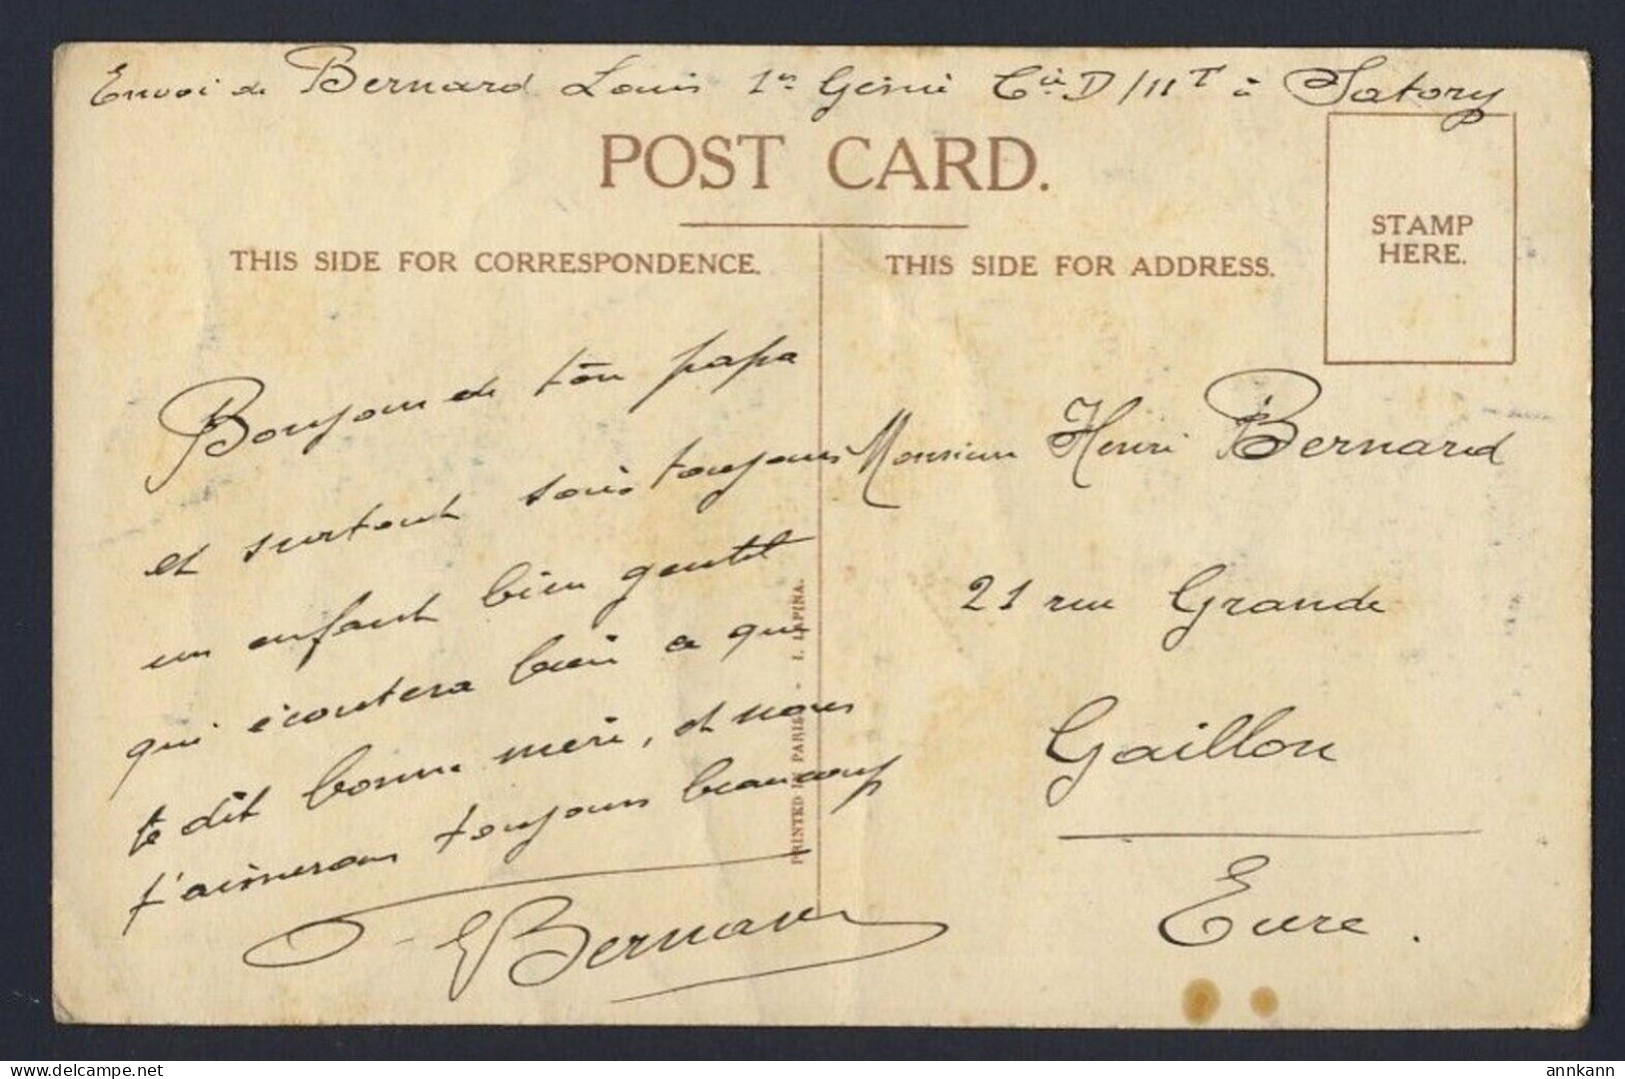 Envoi de Bernard Louis 1er Génie Cie D/11T à Satory
POST CARD.
STAMP
HERE.
THIS SIDE FOR CORRESPONDENCE.
THIS SIDE FOR ADDRESS.
Bonjour de ton papa
et surtout sois toujours
un enfant bien gentil
qui écoutera bien ce que
te dit bonne mère, et nous
t'aimerons toujours beaucoup
Bernard
PRINTED IN PARIS. - I. LAPINA.
Monsieur Henri Bernard
21 rue Grande
Gaillon
Eure.
annkann